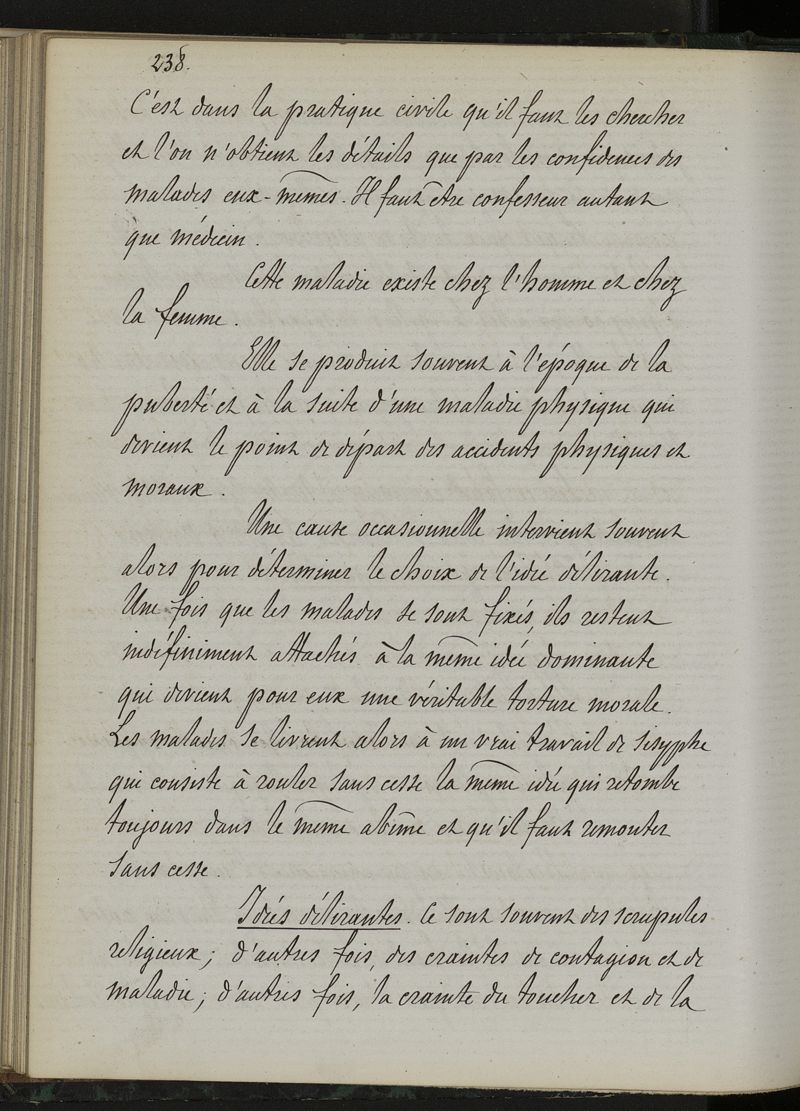 238.
C'est dans la pratique civile qu'il faut les chercher
et l'on n'obtient les détails que par les confidences des
malades eux-mêmes. Il faut être confesseur autant
que médecin.
Cette maladie existe chez l'homme et chez
la femme.
Elle se produit souvent à l'époque de la
puberté et à la suite d'une maladie physique qui
devient le point de départ des accidents physiques et
moraux.
Une cause occasionnelle intervient souvent
alors pour déterminer le choix de l'idée délirante.
Une fois que les malades se sont fixés, ils restent
indéfiniment attachés à la même idée dominante
qui devient pour eux une véritable torture morale.
Les malades se livrent alors à un vrai travail de Sisyphe
qui consiste à rouler sans cesse la même idée qui retombe
toujours dans le même abîme et qu'il faut remonter
sans cesse.
Idées délirantes. Ce sont souvent des scrupules
religieux; d'autres fois, des craintes de contagion et de
maladie; d'autres fois, la crainte du toucher et de la